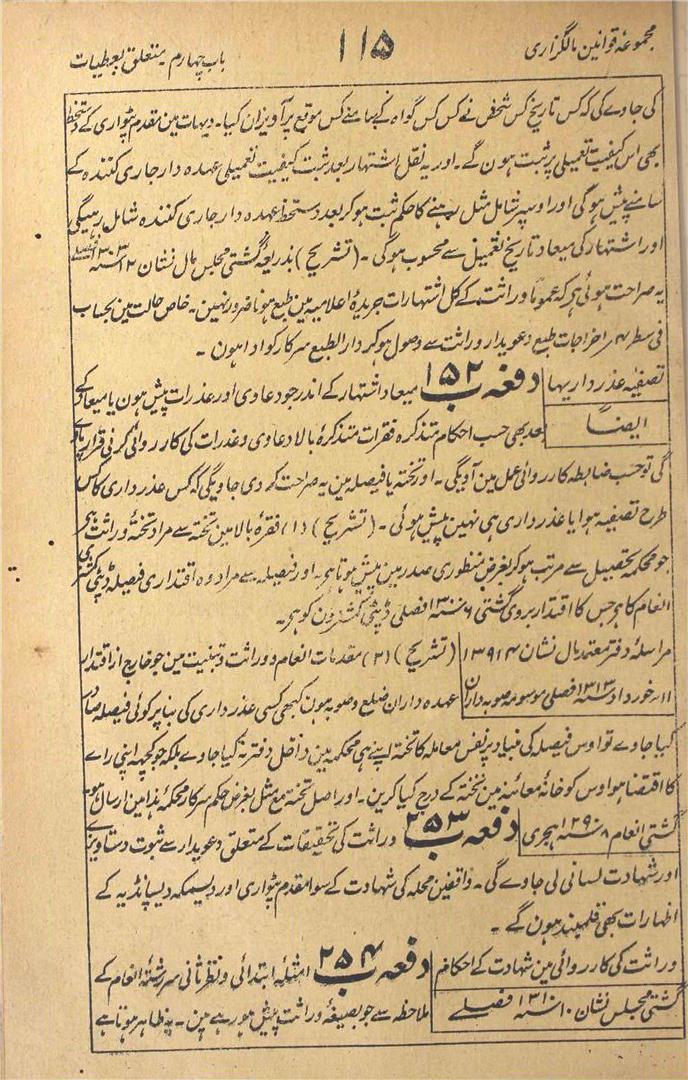 مجموعۂ قوانین مالگزاری
۱۱۵
باب چہارم متعلق بعطیات
کی جاوے گی کہ کس تاریخ کس شخص نے کس کس گواہ کے سامنے کس موقع پر آویزان کیا۔ دیہات مین مقدم پٹواری کے دستخط
بھی اس کیفیت تعمیلی پر ثبت ہون گے۔ اور یہ نقل اشتہار بعد ثبت کیفیت تعمیلی عہدہ دار جاری کنندہ کے
سامنے پیش ہوگی اور اوسپر شامل مثل رہنے کا حکم ثبت ہوکر بعد دستخط عہدہ دار جاری کنندہ شامل رہیگی
اور اشتہار کی میعاد تاریخ تعمیل سے محسوب ہوگی۔ (تشریح) بذریعہ گشتی مجلس مال نشان
یہ صراحت ہوئی ہے کہ عموماً وراثت کے کل اشتہارات جریدۂ اعلامیہ مین طبع ہونا ضرور نہین۔ خاص حالت مین بحساب
فی سطر ۴ر اخراجات طبع دعویدار وراثت سے وصول ہوکر دار الطبع سرکار کو ادا ہون۔
تصفیہ عذرداریہا
دفعہ ۱۵۲ ب میعاد اشتہار کے اندر جو دعاوی اور عذرات پیش ہون یا میعاد کے
ایضاً
بعد بھی حسب احکام متذکرہ فقرات متذکرۂ بالا دعاوی و عذرات کی کارروائی کرنی قرار پائے
گی تو حسب ضابطہ کارروائی عمل مین آویگی۔ اور تختہ یا فیصلہ مین یہ صراحت کردی جاویگی کہ کس عذرداری کا کس
طرح تصفیہ ہوا یا عذرداری ہی نہین پیش ہوئی۔ (تشریح) (۱) فقرۂ بالا مین تختہ سے مراد تختۂ وراثت ہے
جو محکمہ تحصیل سے مرتب ہوکر بغرض منظوری صدر مین پیش ہوتا ہے۔ اور فیصلہ سے مراد وہ اقتداری فیصلہ ڈپٹی کمشنری
انعام کا ہے جس کا اقتدار بروی گشتی ۶ سنہ ۱۳۰۰ فصلی ڈپٹی کمشنرون کو ہے۔
مراسلۂ دفتر معتمد مال نشان ۱۳۹۱۴
(تشریح) (۲) مقدمات انعام و وراثت و تبنیت مین جو خارج از اقتدار
۱۱ خورداد سنہ ۱۳۱۳ فصلی موسومہ صوبہ داران
عہدہ داران ضلع و صوبہ ہون کبھی کسی عذرداری کی بنا پر کوئی فیصلہ صادر
کیا جاوے تو اوس فیصلہ کی بنیاد پر نفس معاملہ کا تختہ اپنے ہی محکمہ مین داخل دفتر نہ کیا جاوے بلکہ جو کچھ اپنی راے
کا اقتضا ہو اوس کو خانۂ معائنہ مین تختہ کے درج کیا کرین۔ اور اصل تختہ مع مثل بغرض حکم سرکار محکمۂ ہذا مین ارسال ہو
گشتی انعام ۸ سنہ ۱۲۹۰ ہجری
دفعہ ۲۵۳ ب وراثت کی تحقیقات کے متعلق دعویدار سے ثبوت دستاویزی
اور شہادت لسانی لی جاوے گی۔ واقفین محلہ کی شہادت کے سوا مقدم پٹواری اور دیسمکہ دیسپانڈیہ کے
اظہارات بھی قلمبند ہون گے۔
وراثت کی کارروائی مین شہادت کے احکام
دفعہ ۲۵۴ ب امثلہ ابتدائی و نظرثانی سررشتۂ انعام کے
گشتی مجلس نشان ۱۰ سنہ ۱۳۱۰ فصلی
ملاحظہ سے جو بصیغۂ وراثت پیش ہو رہے ہین۔ یہ ظاہر ہوتا ہے